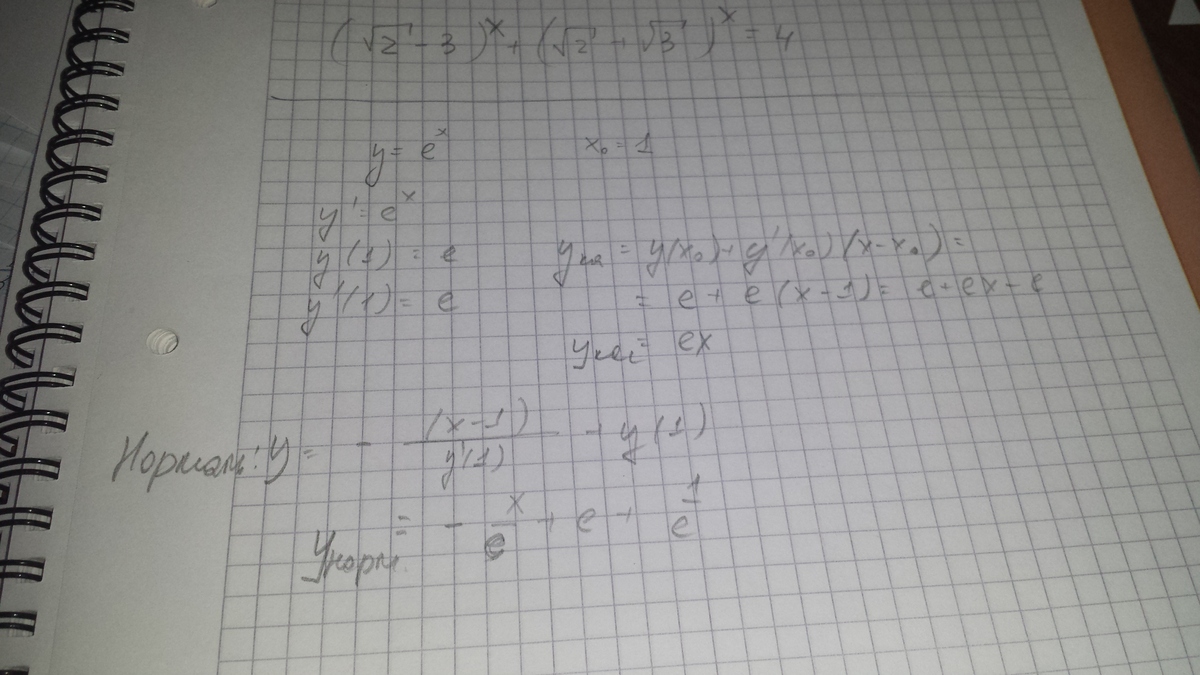 (√2 - 3)ˣ + (√2 + √3)ˣ = 4
y = eˣ x₀ = 1
y' = eˣ
y(1) = e yкас = y(x₀) + y'(x₀)(x - x₀) =
y'(1) = e = e + e(x - 1) = e + ex - e
yкас = ex
Нормаль: y = - (x - 1)/y'(1) + y(1)
yнорм. = - x/e + e + 1/e